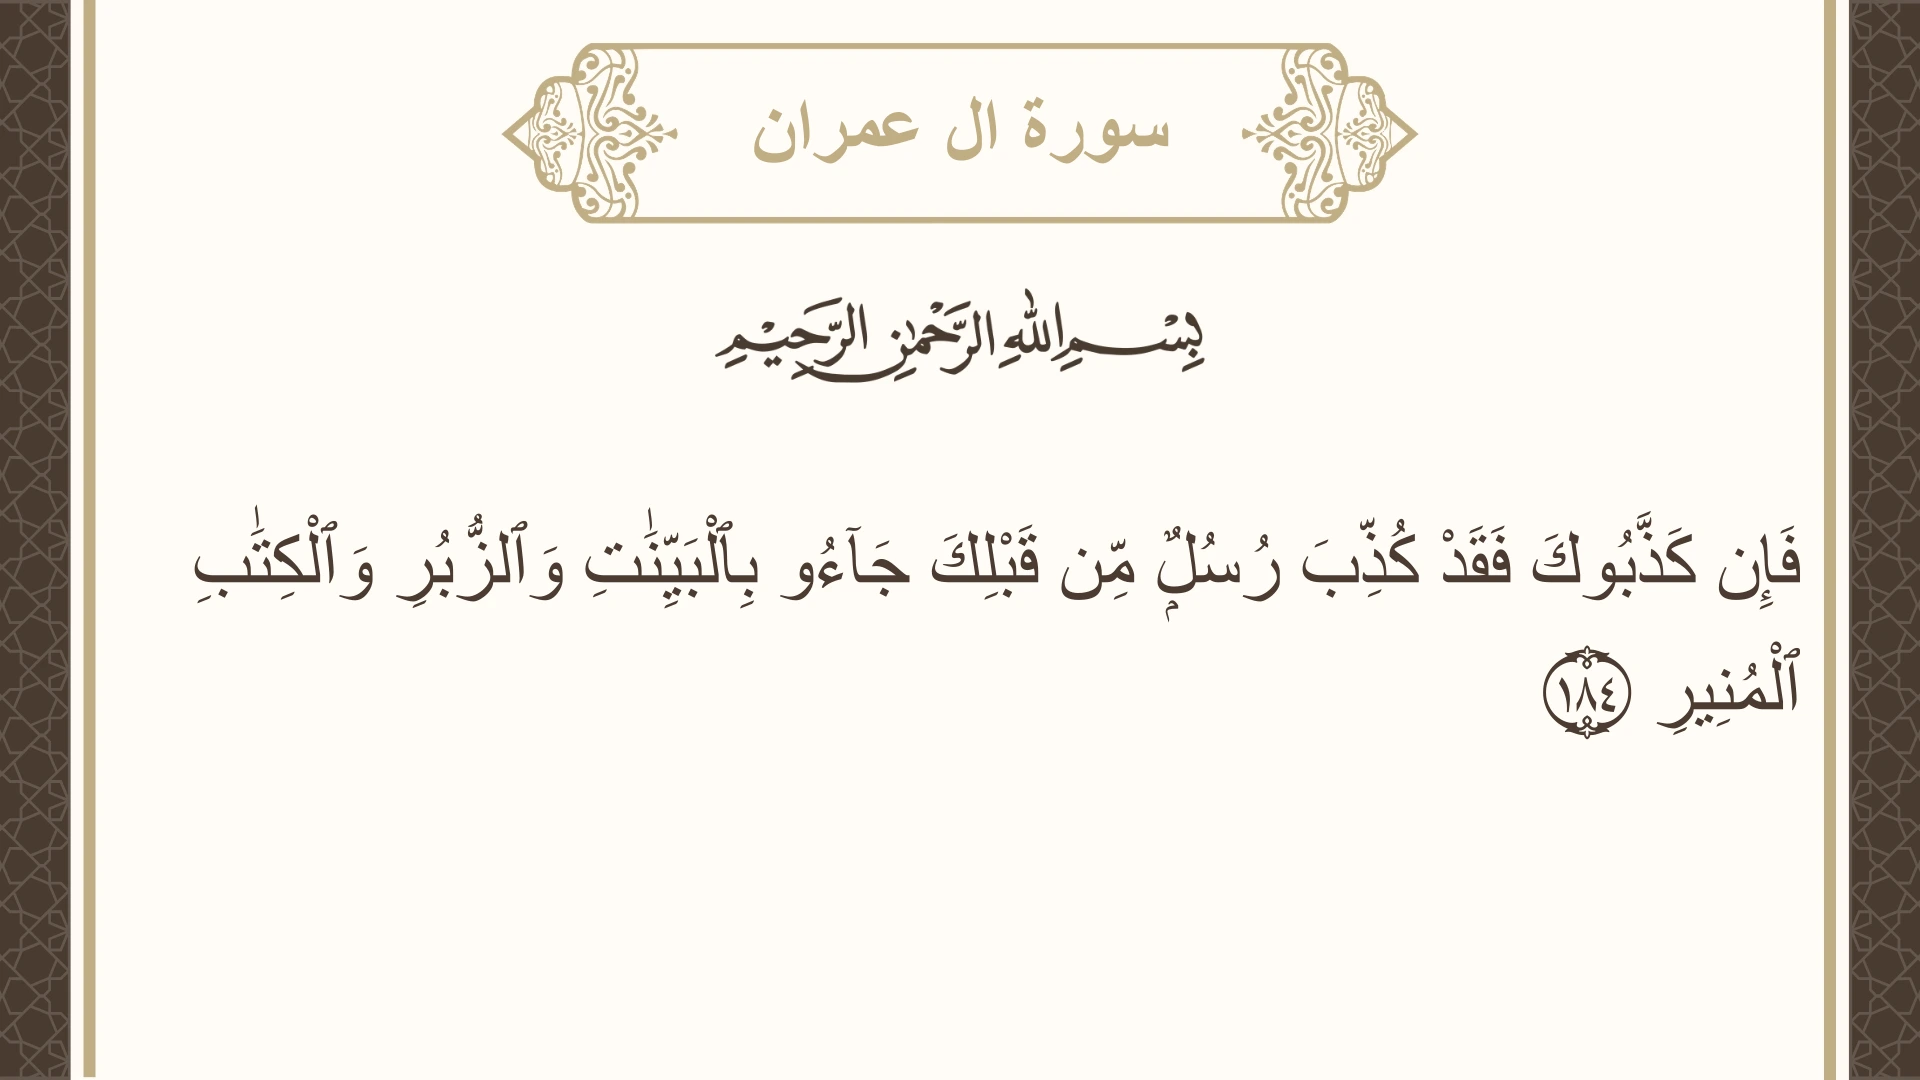 سورة ال عمران
بِسْمِ اللهِ الرَّحْمٰنِ الرَّحِيْمِ
فَإِن كَذَّبُوكَ فَقَدْ كُذِّبَ رُسُلٌۭ مِّن قَبْلِكَ جَآءُو بِٱلْبَيِّنَٰتِ وَٱلزُّبُرِ وَٱلْكِتَٰبِ
ٱلْمُنِيرِ ١٨٤